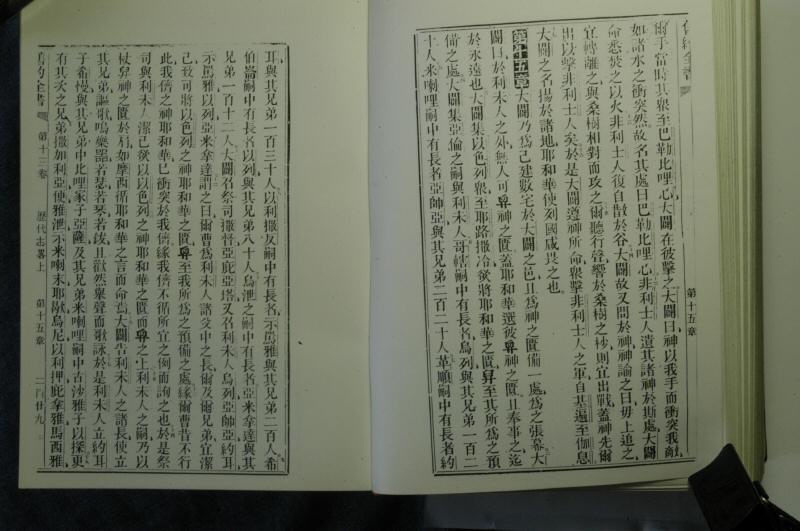 舊約全書
爾手當時其衆至巴勒比哩心大闢在彼擊之大闢曰神以我手而衝突我敵
如諸水之衝突然故名其處曰巴勒比哩心非利士人遺其諸神於斯處大闢
命悉焚之以火非利士人復自散於谷大闢故又問於神神諭之曰毋上追之
宜轉離之與桑樹相對而攻之爾聽行聲響於桑樹之杪則宜出戰蓋神先爾
出以擊非利士人矣於是大闢遵神所命衆擊非利士人之軍自基遍至伽息
大闢之名揚於諸地耶和華使列國咸畏之也
第十五章大闢乃爲己建數宅於大闢之邑且爲神之匱備一處爲之張幕大
闢曰於利未人之外無人可舁神之匱蓋耶和華選彼舁神之匱且奉事之迄
於永遠也大闢集以色列衆至耶路撒冷欲將耶和華之匱舁至其所爲之預
備之處大闢集亞倫之嗣與利未人哥轄嗣中有長者烏列與其兄弟一百二
十人米喇哩嗣中有長者亞師亞與其兄弟二百二十人革順嗣中有長者約
第十五章
耳與其兄弟一百三十人以利撒反嗣中有長者示罵雅與其兄弟二百人希
伯崙嗣中有長者以列與其兄弟八十人烏泄之嗣中有長者亞米拿達與其
兄弟一百十二人大闢召祭司撒督亞庇亞塔又召利未人烏列亞師亞約耳
示罵雅以列亞米拿達謂之曰爾曹爲利未人諸父中之長爾及爾兄弟宜潔
己致可將以色列之神耶和華之匱舁至我所爲之預備之處緣爾曹昔不行
此我儕之神耶和華已衝突於我儕緣我儕不循所宜之例而詢之也於是祭
司與利未人潔己欲以以色列之神耶和華之匱而舁之上利未人之嗣乃以
杖舁神之匱於肩如摩西循耶和華之言而命焉大闢告利未人之諸長使立
其兄弟謳歌鳴樂器若瑟若琴若鈸且歡然舉聲而歌詠於是利未人立約耳
子希幔與其兄弟中比哩家子亞薩及其兄弟米喇哩嗣中古沙雅子以探更
有其次之兄弟撒加利亞便雅泄示米喇末耶歇烏尼以利押庇拿雅馬西雅
舊約全書 第十三卷 歷代志畧上 第十五章 二百廿九